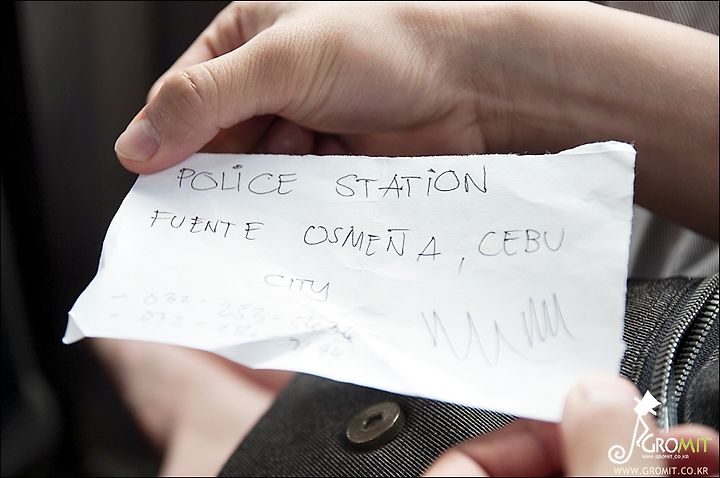 POLICE STATION
FUENTE OSMEÑA, CEBU
CITY
GROMIT
WWW.GROMIT.CO.KR
WWW.GROMIT.CO.KR